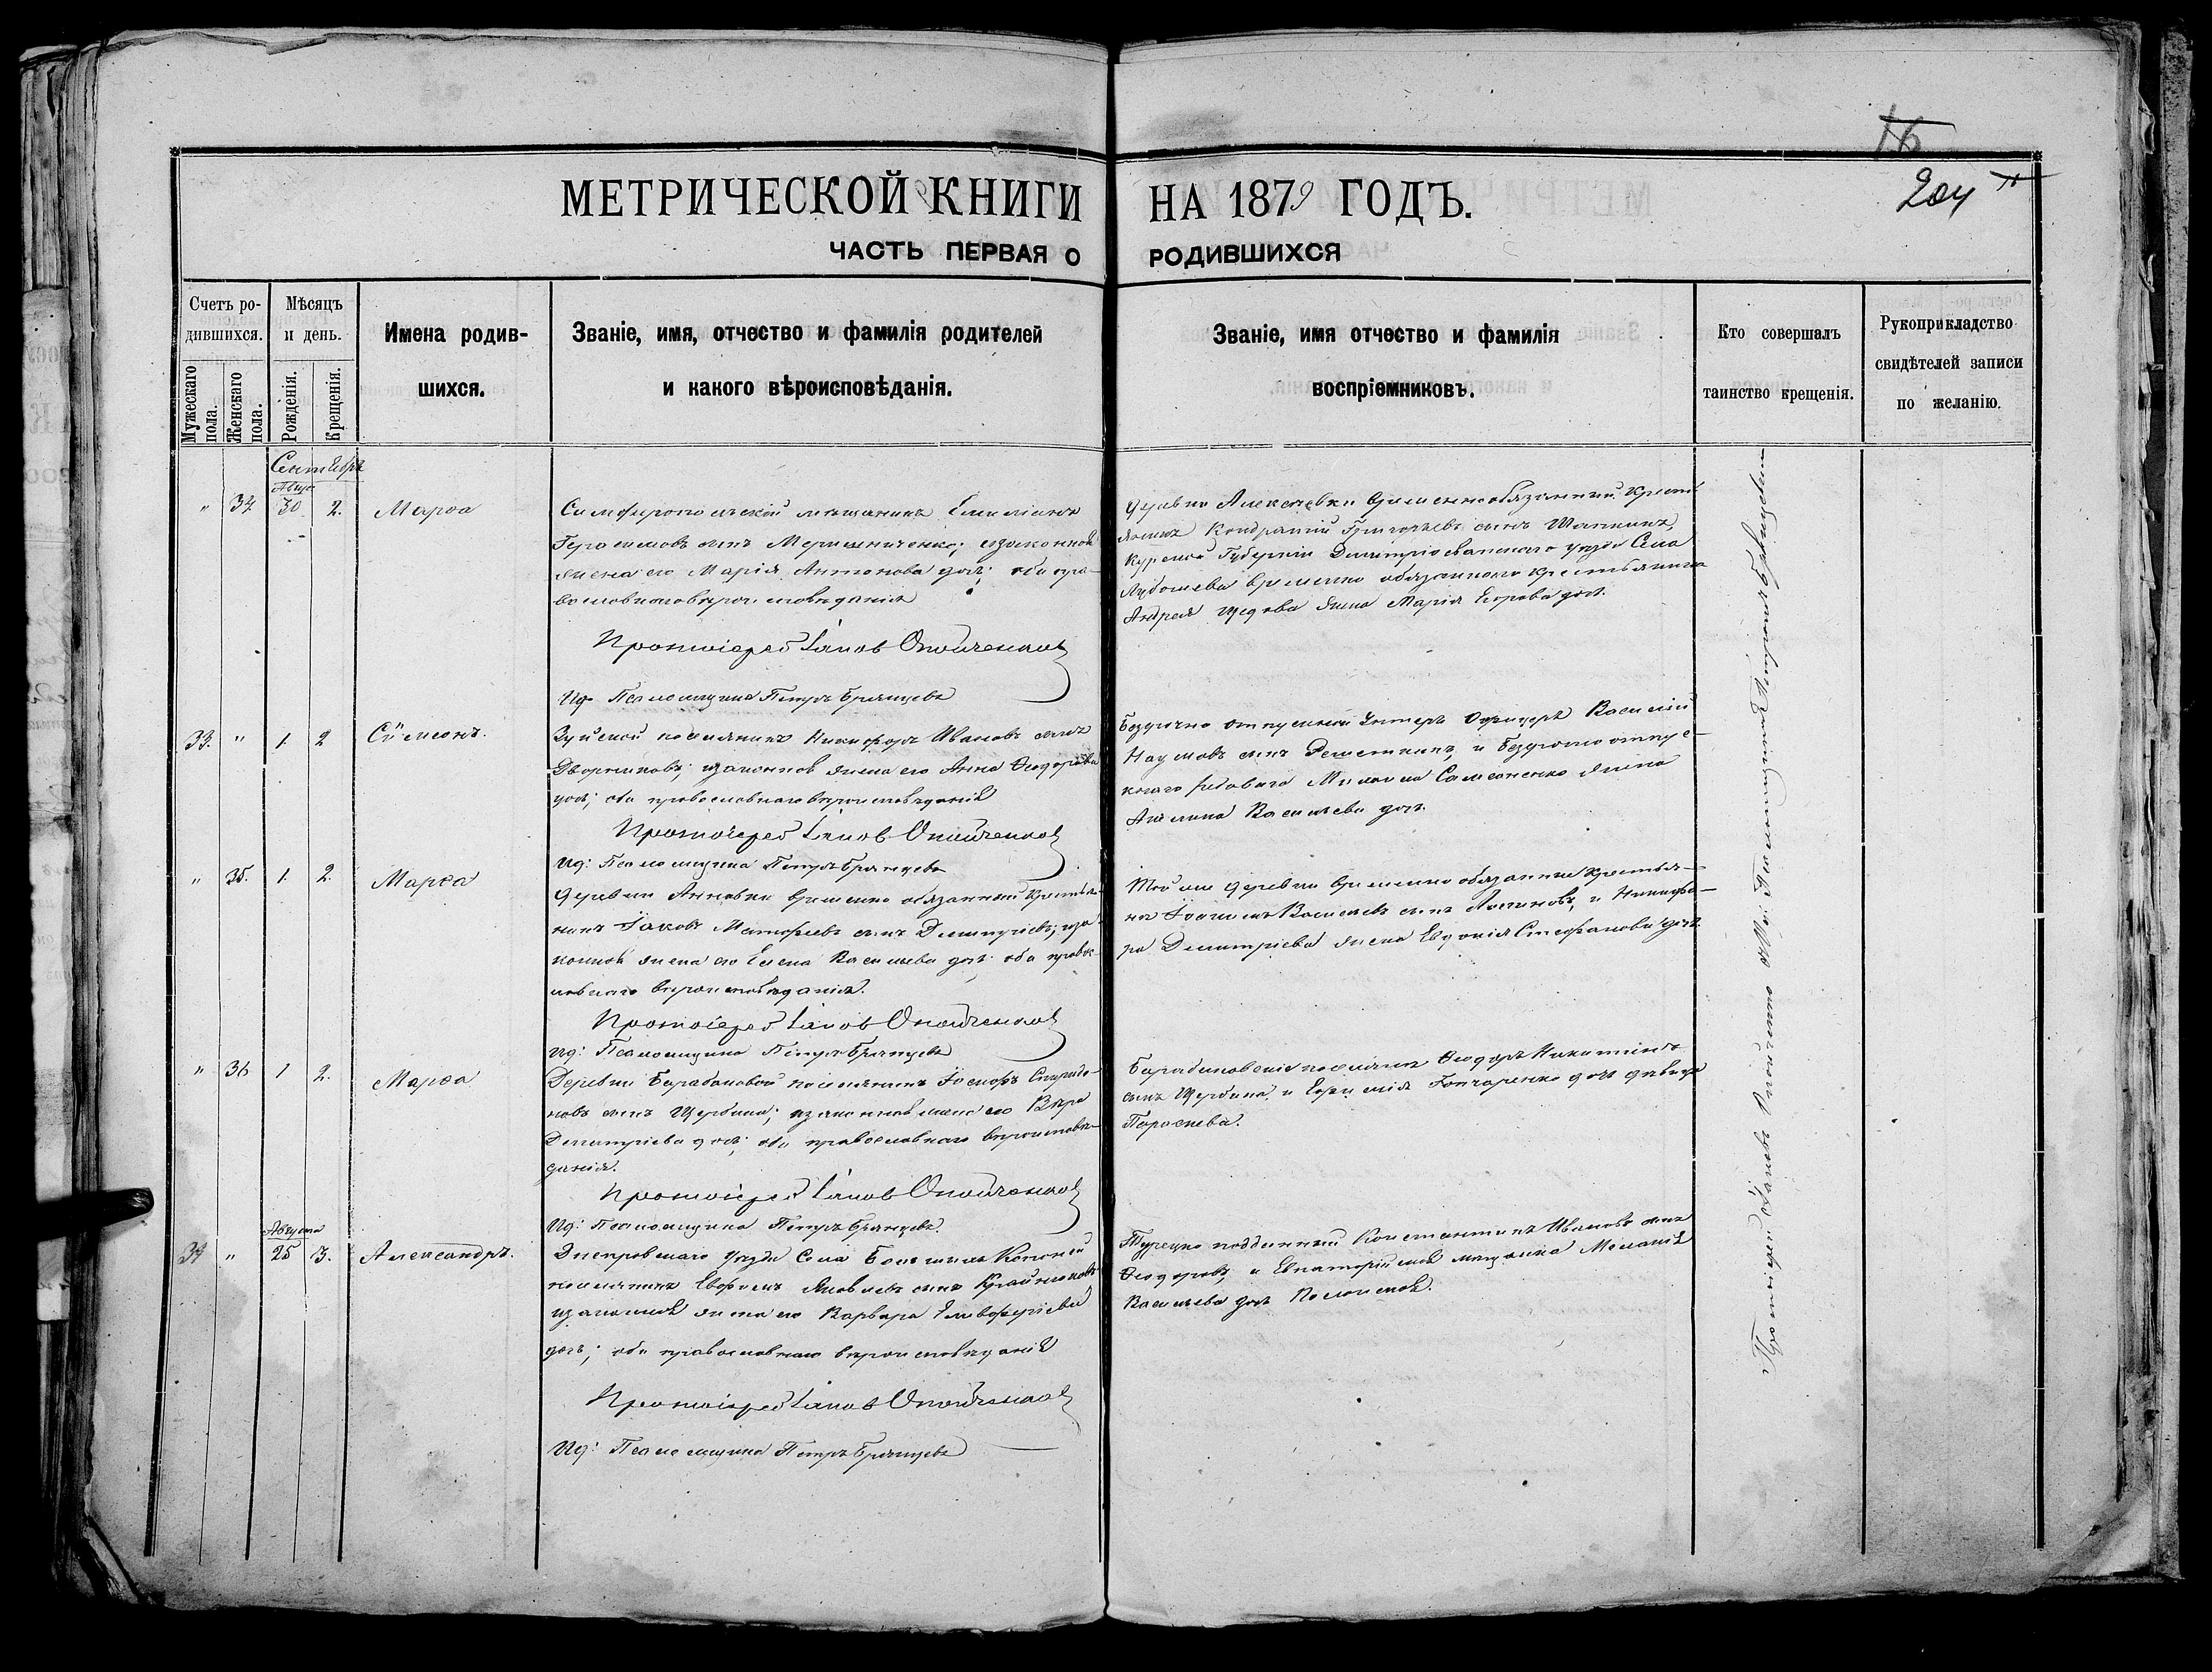 16
204
МЕТРИЧЕСКОЙ КНИГИ НА 1879 ГОДЪ.
ЧАСТЬ ПЕРВАЯ О РОДИВШИХСЯ
Счетъ ро-
дившихся.
Мужескаго пола.
Женскаго пола.
Мѣсяцъ
и день.
Рожденія.
Крещенія.
Имена родив-
шихся.
Званіе, имя, отчество и фамилія родителей
и какого вѣроисповѣданія.
Званіе, имя отчество и фамилія
воспріемниковъ.
Кто совершалъ
таинство крещенія.
Рукоприкладство
свидѣтелей записи
по желанію.
Сентябрь
Авгус
" 34 30 2. Марѳа
Симферопольскій мѣщанинъ Емиліанъ
Герасимовъ сынъ Мерошниченко; и законная
жена его Марія Антонова дочь; оба пра-
вославнаго вѣроисповѣданія
Протоіерей Іаковъ
Ид: Псаломщика Петръ Брянцевъ
Деревни Алексѣевки временнообязанный кресть
янинъ Кондратій Григорьевъ сынъ Шапкинъ,
Курской Губерніи Дмитріевскаго уѣзда Села
временно обязаннаго крестьянина
Андрея жена Марія Егорова дочь.
33. " 1 2 Сѷмеонъ.
Зуйскій поселянинъ Никифоръ Ивановъ сынъ
Дворниковъ; и законная жена его Анна Ѳеодорова
дочь; оба православнаго вѣроисповѣданія
Протоіерей Іаковъ
Ид: Псаломщика Петръ Брянцевъ
Безсрочно отпускной Унтеръ Офицеръ Василій
Наумовъ сынъ Решеткинъ, и безсрочно отпус-
кнаго рядоваго Михаила Самсоненко жена
Васильева дочь.
" 35. 1. 2. Марѳа
Деревни Анновки временно обязанный крестья-
нинъ Іаковъ Матфеевъ сынъ Димитріевъ; и за
конная жена его Елена Васильева дочь оба правос-
лавнаго вѣроисповѣданія.
Протоіерей Іаковъ
Ид: Псаломщика Петръ Брянцевъ
Той же деревни временно обязанные крестья-
не Іоакимъ Васильевъ сынъ Логиновъ, и Никифо-
ра Димитріева жена Евдокія Стефанова дочь.
" 36 1 2. Марѳа
Деревни Барабановой поселянинъ Іосифъ Спиридо-
новъ сынъ Щербина; и законная жена его Вѣра
Димитріева дочь; оба православнаго вѣроисповѣ-
данія.
Протоіерей Іаковъ
Ид: Псаломщика Петръ Брянцевъ.
Барабановскіе поселяне Ѳеодоръ Никитинъ
сынъ Щербина, и Гончаренко дочь дѣвица
Параскева.
Августа
34 " 25 3. Александръ.
Днепровскаго уѣзда Села Большихъ Копаней
поселянинъ Ефремъ Яковлевъ сынъ
и законная жена его Варвара Елевферіева
дочь; оба православнаго вѣроисповѣданія
Протоіерей Іаковъ
Ид: Псаломщика Петръ Брянцевъ
Турецко подданный Константинъ Ивановъ сынъ
Ѳеодоровъ, и Евпаторійская мѣщанка Меланія
Васильева дочь
Протоіерей Іаковъ Псаломщика Петромъ Брянцевымъ